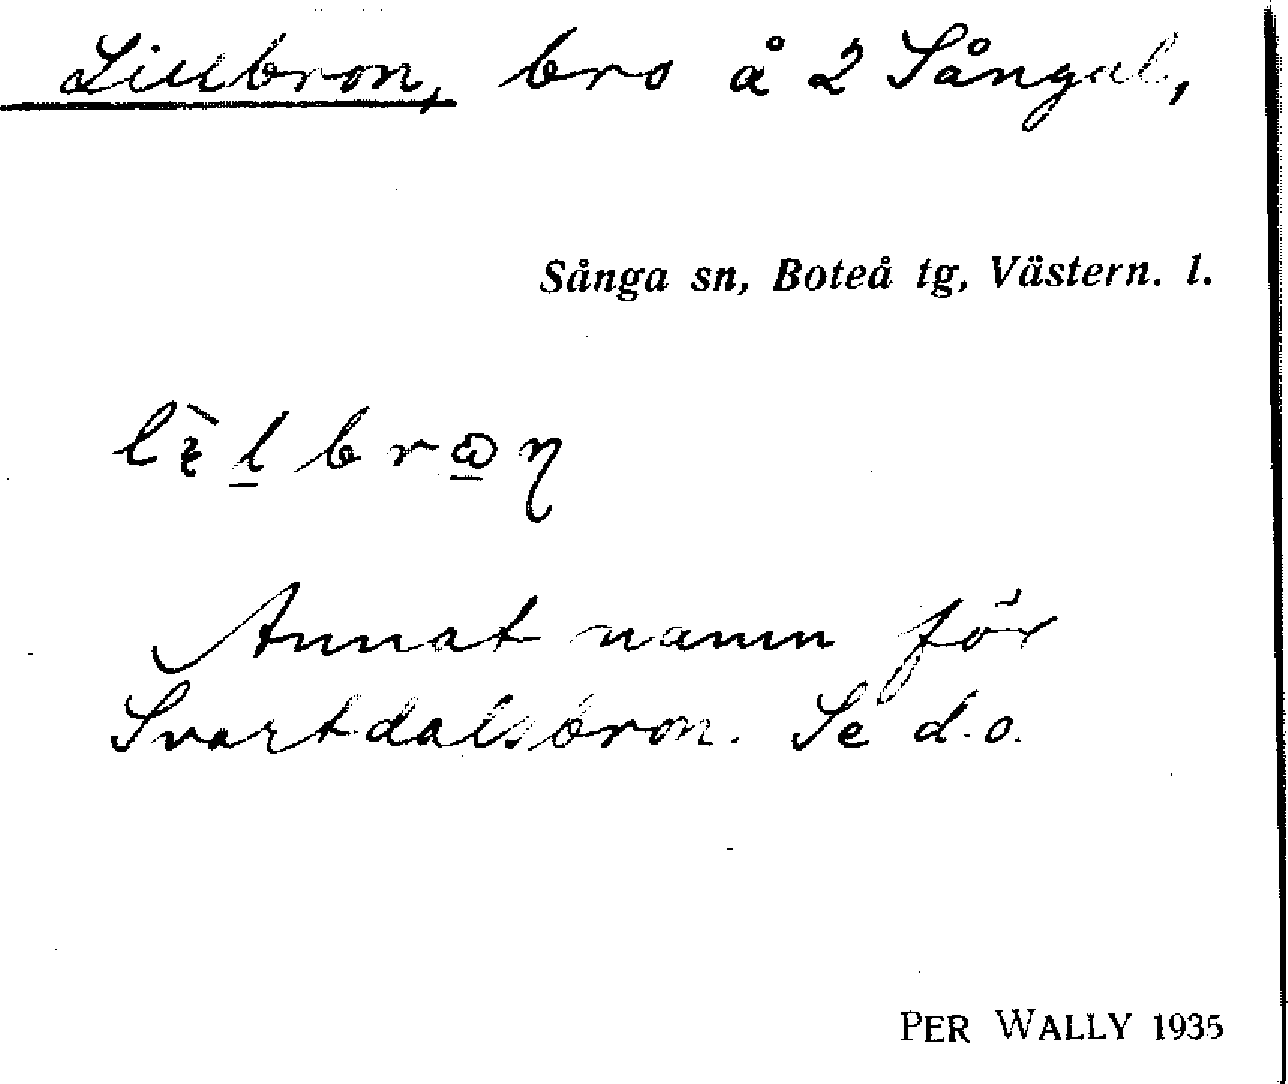 Lillbron, bro å 2 Sångal,
Sånga sn, Boteå tg, Västern. l.
Annat namn för
Svartdalsbron. Se d.o.
PER WALLY 1935